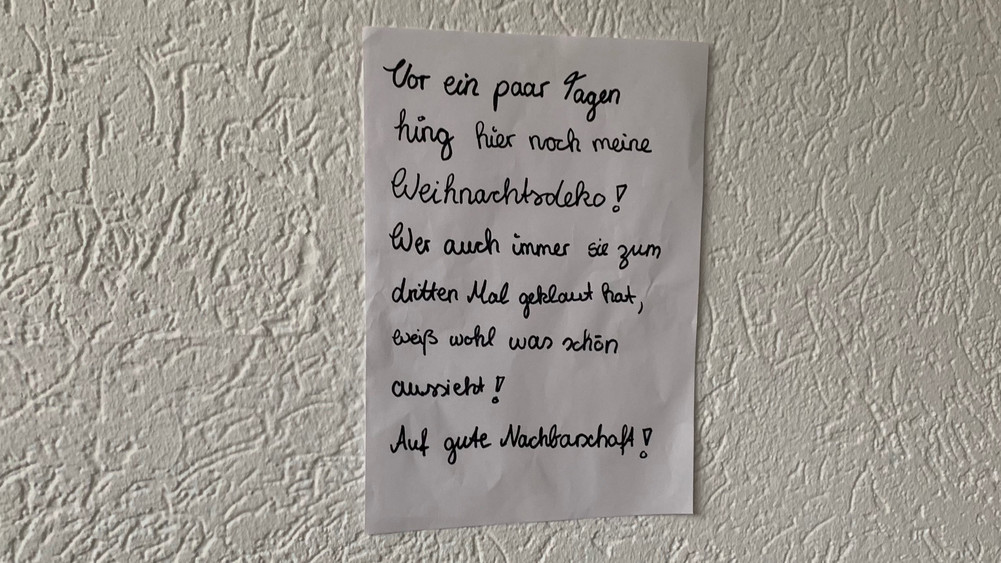 Vor ein paar Tagen
hing hier noch meine
Weihnachtsdeko!
Wer auch immer sie zum
dritten Mal geklaut hat,
weiß wohl was schön
aussieht!
Auf gute Nachbarschaft!